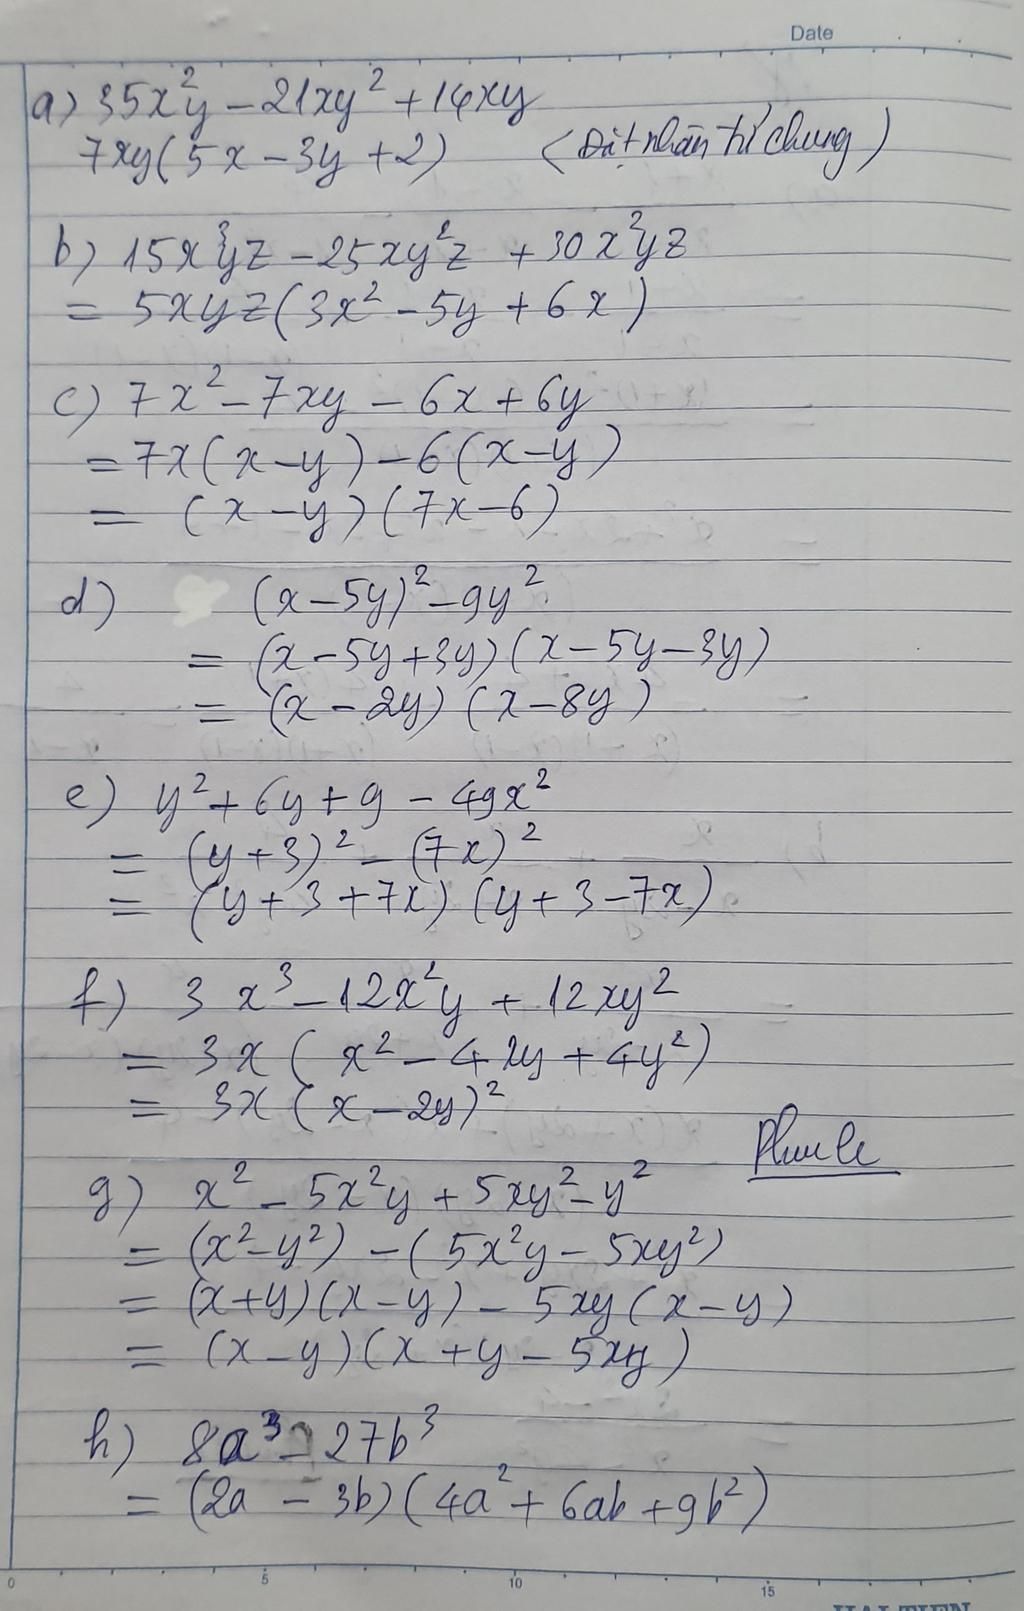 Date
a) 35x²y - 21xy² + 14xy
7xy(5x - 3y + 2) (Đặt nhân tử chung)
b) 15x³yz - 25xy²z + 30x²yz
= 5xyz(3x² - 5y + 6x)
c) 7x² - 7xy - 6x + 6y
= 7x(x - y) - 6(x - y)
= (x - y)(7x - 6)
d) (x - 5y)² - 9y²
= (x - 5y + 3y)(x - 5y - 3y)
= (x - 2y)(x - 8y)
e) y² + 6y + 9 - 49x²
= (y + 3)² - (7x)²
= (y + 3 + 7x)(y + 3 - 7x)
f) 3x³ - 12x²y + 12xy²
= 3x(x² - 4xy + 4y²)
= 3x(x - 2y)²
g) x² - 5x²y + 5xy² - y²
= (x² - y²) - (5x²y - 5xy²)
= (x + y)(x - y) - 5xy(x - y)
= (x - y)(x + y - 5xy)
h) 8a³ - 27b³
= (2a - 3b)(4a² + 6ab + 9b²)
0 5 10 15